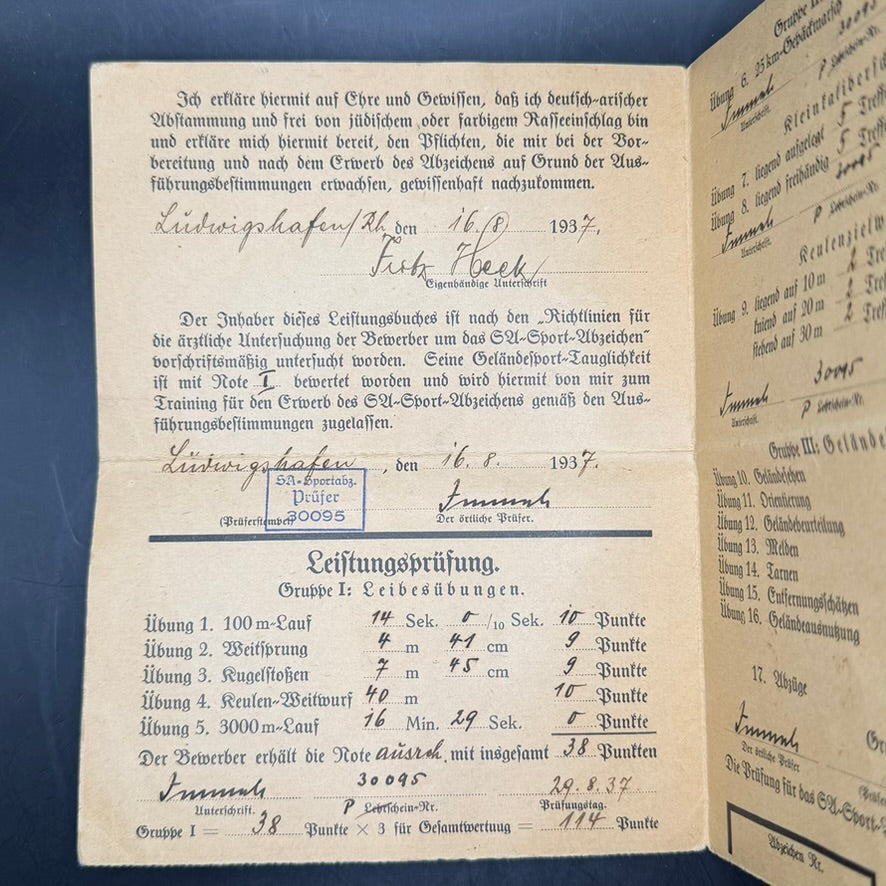 Ich erkläre hiermit auf Ehre und Gewissen, daß ich deutsch-arischer
Abstammung und frei von jüdischem oder farbigem Rasseeinschlag bin
und erkläre mich hiermit bereit, den Pflichten, die mir bei der Vor-
bereitung und nach dem Erwerb des Abzeichens auf Grund der Aus-
führungsbestimmungen erwachsen, gewissenhaft nachzukommen.
Ludwigshafen/Rh. den 16. 8. 1937.
Fritz Heck
Eigenhändige Unterschrift
Der Inhaber dieses Leistungsbuches ist nach den „Richtlinien für
die ärztliche Untersuchung der Bewerber um das SA-Sport-Abzeichen“
vorschriftsmäßig untersucht worden. Seine Geländesport-Tauglichkeit
ist mit Note I bewertet worden und wird hiermit von mir zum
Training für den Erwerb des SA-Sport-Abzeichens gemäß den Aus-
führungsbestimmungen zugelassen.
Ludwigshafen, den 16. 8. 1937.
SA-Sportabz.
Prüfer
30095
(Prüferstempel) Der örtliche Prüfer.
Leistungsprüfung.
Gruppe I: Leibesübungen.
Übung 1. 100 m-Lauf 14 Sek. 0/10 Sek. 10 Punkte
Übung 2. Weitsprung 4 m 41 cm 9 Punkte
Übung 3. Kugelstoßen 7 m 45 cm 9 Punkte
Übung 4. Keulen-Weitwurf 40 m 10 Punkte
Übung 5. 3000 m-Lauf 16 Min. 29 Sek. 0 Punkte
Der Bewerber erhält die Note ausrch. mit insgesamt 38 Punkten
30095 29.8.37
Unterschrift. P Lehrschein-Nr. Prüfungstag.
Gruppe I = 38 Punkte × 3 für Gesamtwertung = 114 Punkte
Gruppe II
30095
Übung 6. 25 km-Gepäckmarsch
P Lehrschein-Nr.
Unterschrift.
Kleinkalibersch
Übung 7. liegend aufgelegt 5 Treff
Übung 8. liegend freihändig 5 Treff
30095
Unterschrift. P Lehrschein-Nr.
Keulenzielw
Übung 9. liegend auf 10 m 2 Tref
kniend auf 20 m 2 Tref
stehend auf 30 m 2 Tref
30095
Unterschrift. P Lehrschein-Nr.
Gruppe III: Gelände
Übung 10. Geländesehen
Übung 11. Orientierung
Übung 12. Geländebeurteilung
Übung 13. Melden
Übung 14. Tarnen
Übung 15. Entfernungsschätzen
Übung 16. Geländeausnutzung
17. Abzüge
Der örtliche Prüfer
Die Prüfung für das SA-Sport-
Abzeichen Nr.